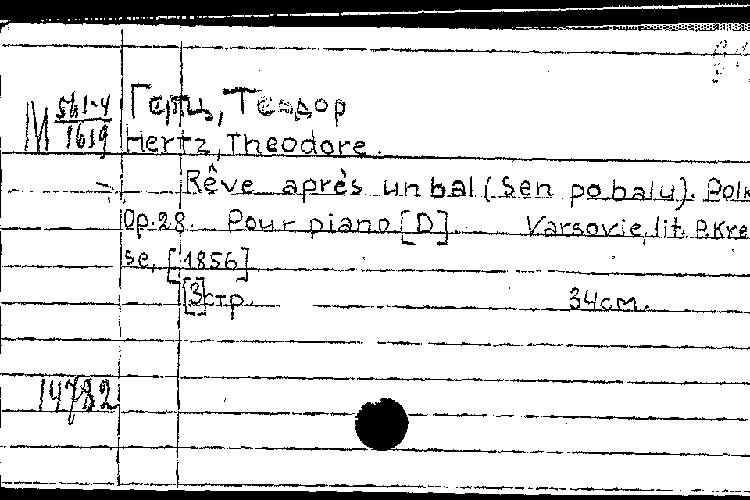 М 561-4/1619
Герц, Теодор
Hertz, Theodore.
Rêve après un bal (Sen po balu). Polk
Op.28. Pour piano [D]. Varsovie, lit. P. Kre
se, [1856]
[3] стр. 34 см.
14782